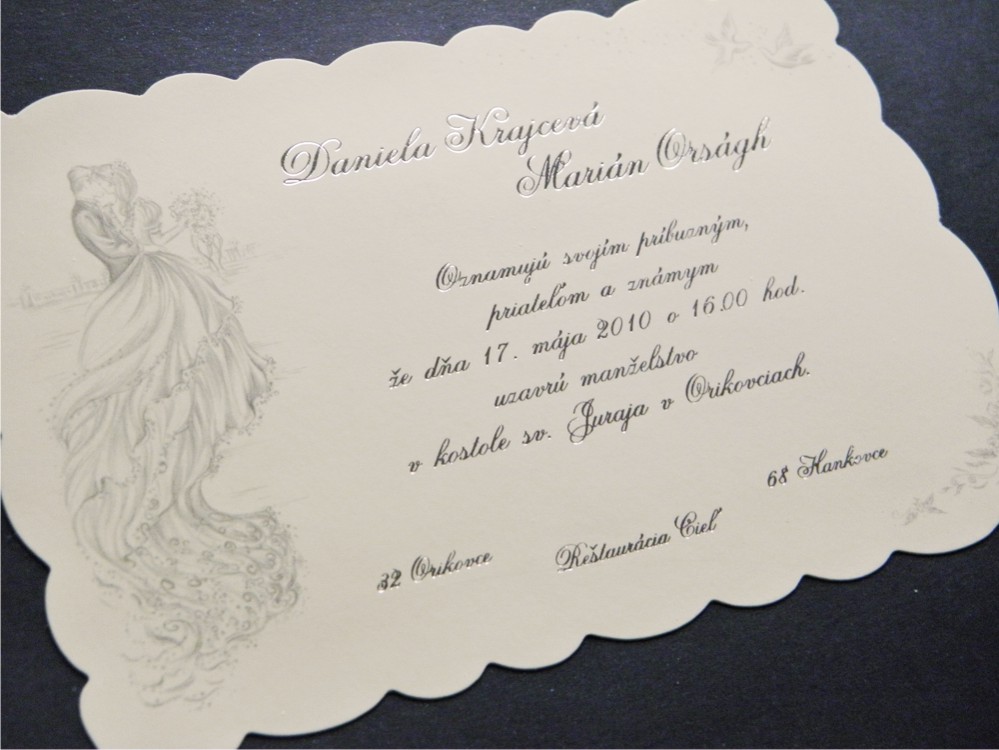 Daniela Krajcevá
Marián Orságh
Oznamujú svojím príbuzným,
priateľom a známym
že dňa 17. mája 2010 o 16.00 hod.
uzavrú manželstvo
v kostole sv. Juraja v Orikovciach.
68 Hankovce
32 Orikovce
Reštaurácia Cieľ